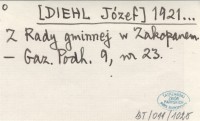 [DIEHL Józef] 1921...
Z Rady gminnej w Zakopanem
— Gaz. Podh. 9, nr 23.